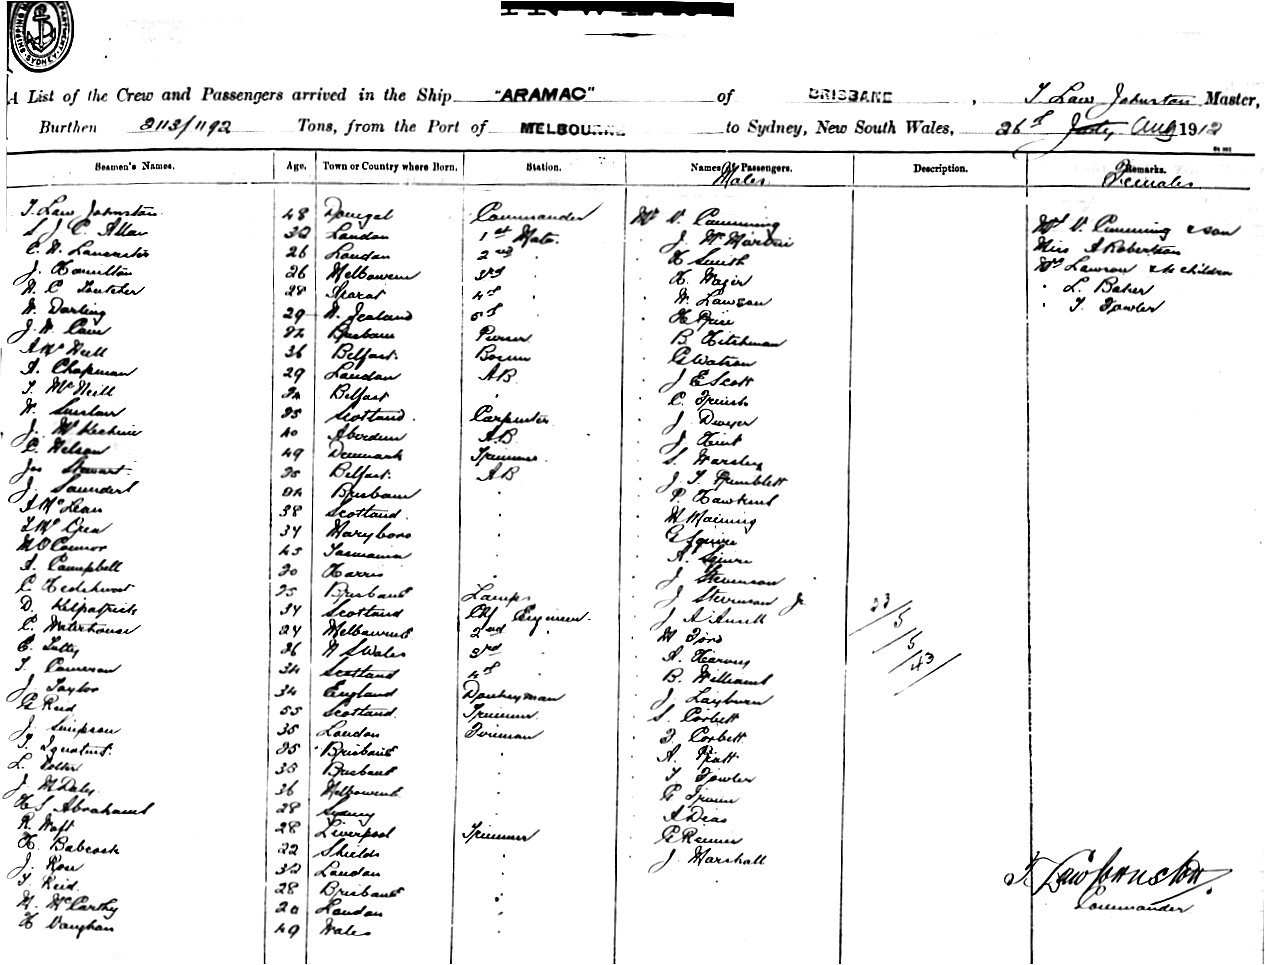 SHIPPING DEPARTMENT SYDNEY
A List of the Crew and Passengers arrived in the Ship "ARAMAC" of BRISBANE, T Law Johnston Master,
Burthen 2113/1192 Tons, from the Port of MELBOURNE to Sydney, New South Wales, 26th July Aug 1912
Seamen's Names. Age. Town or Country where Born. Station. Names of Passengers. Description. Remarks.
Males Females
T. Law Johnston 48 Donegal Commander Mr V. Cumming
S J C. Allan 32 London 1st Mate. J. Mc Martin Mrs V. Cumming & son
C. W. Lancaster 26 London 2nd H Smith Miss A Robertson
J. Hamilton 26 Melbourne 3rd H. Wager Mrs Lawson & children
W. C 28 Ararat 4th W. Lawson L. Baker
W. Darling 29 N. Zealand 5th H T. Fowler
J. W. Brisbane Purser B Hitchman
A Mc Neill 36 Belfast. Bosun G Watson
A. Chapman 29 London AB J E Scott
T. Mc Neill Belfast C.
W. 25 Scotland Carpenter J. Dwyer
J. Mc Kechnie 40 Aberdeen AB J
C. Nelson 49 Denmark Trimmer S. Worsley
Jas Stewart 25 Belfast. AB J. T.
J. Saunders Brisbane P. Hawkins
A Mc Lean 38 Scotland. W Manning
T. Mc Crea 34 Maryboro G Squire
M O'Connor 45 Tasmania A. Squire
A. Campbell 20 Harris J Stevenson
C 25 Brisbane Lamps J Stevenson Jr
D. Kilpatrick 34 Scotland Chf Engineer. J A 23/5/5/43
C. Waterhouse 24 Melbourne 2nd W Ford
E. 26 N S Wales 3rd A. Harvey
T. Cameron 34 Scotland 4th B. Williams
J. Taylor 34 England Donkeyman J. Layburn
G Reid 55 Scotland Trimmer S. Corbett
J. Simpson 35 London Fireman F. Corbett
25 Brisbane A. Pratt
L. 35 Brisbane T. Fowler
J. M Daly 36 Melbourne G
H S Abrahams 28 Sydney A Dias
R. 28 Liverpool Trimmer G
H. Babcock 22 Shields J. Marshall
J. Rose 32 London
T. Reid 28 Brisbane T. Law Johnston
W. McCarthy 20 London Commander
H Vaughan 49 Wales